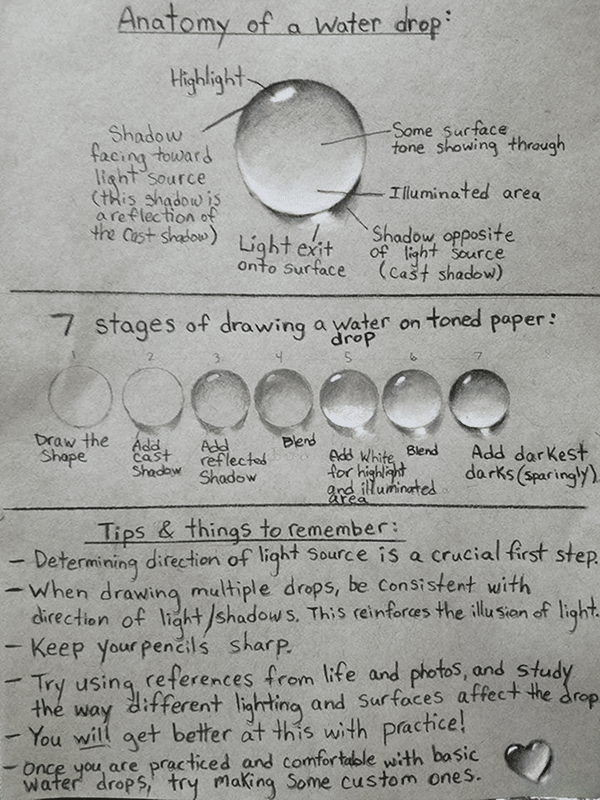 Anatomy of a water drop:
Highlight
Shadow
facing toward
light source
(this shadow is
a reflection of
the cast shadow)
Some surface
tone showing through
Illuminated area
Light exit
onto surface
Shadow opposite
of light source
(cast shadow)
7 stages of drawing a water on toned paper:
drop
1 2 3 4 5 6 7
Draw the
Shape
Add
cast
Shadow
Add
reflected
Shadow
Blend
Add White
for highlight
and illuminated
area
Blend
Add darkest
darks (sparingly)
Tips & things to remember:
- Determining direction of light source is a crucial first step.
- When drawing multiple drops, be consistent with
direction of light/shadows. This reinforces the illusion of light.
- Keep your pencils sharp.
- Try using references from life and photos, and study
the way different lighting and surfaces affect the drop
- You will get better at this with practice!
- Once you are practiced and comfortable with basic
water drops, try making some custom ones.